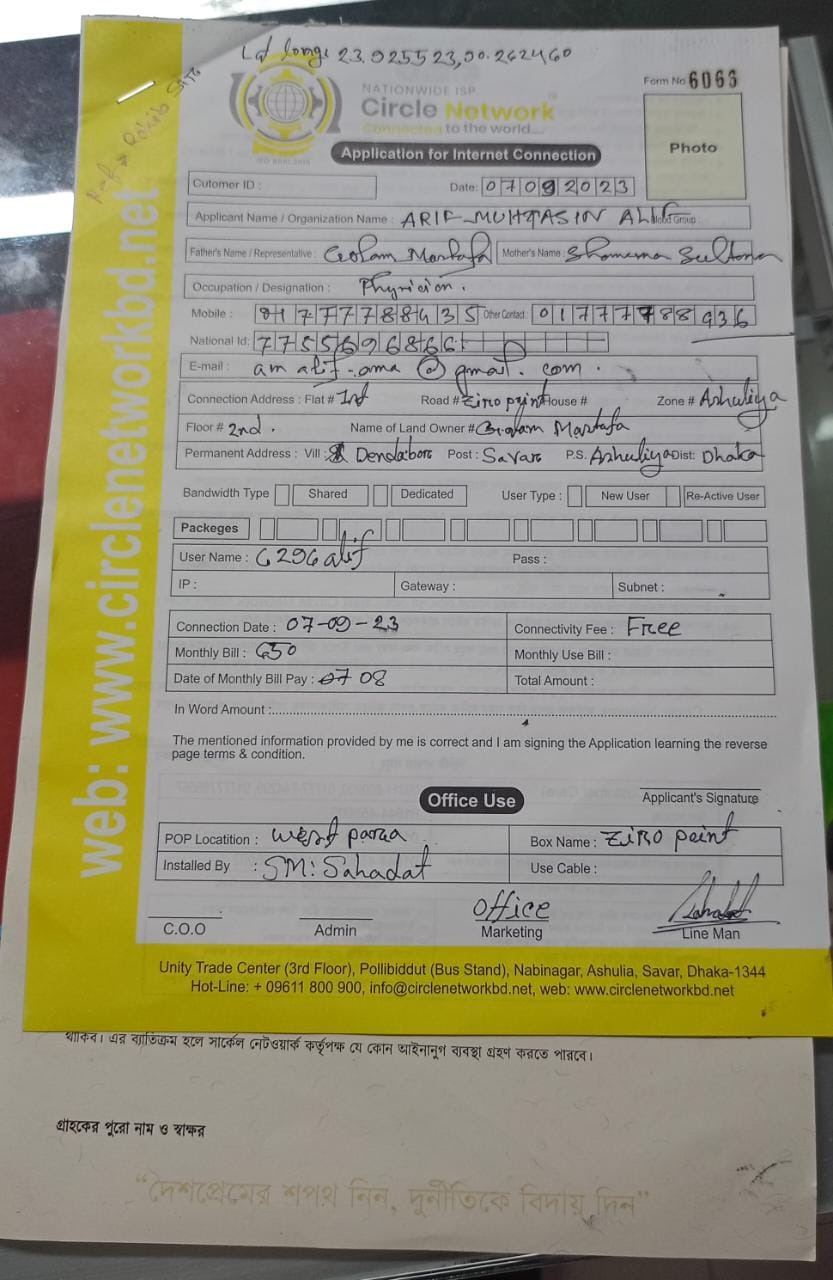 Lat long: 23.925523,90.262460
Form No 6063
NATIONWIDE ISP
Circle Network
Connected to the world....
ISO 9001:2015
Application for Internet Connection
Photo
Cutomer ID :
Date: 07092023
Applicant Name / Organization Name : ARIF MUHTASIN ALIF Blood Group:
Father's Name / Representative : Golam Mostafa Mother's Name : Shamema Sultana
Occupation / Designation : Physician.
Mobile : 01777788435 Other Contact: 01777788936
National Id: 7755696866
E-mail : am alif.ama @ gmail. com.
Connection Address : Flat # 1st Road # Ziro point House # Zone # Ashuliya
Floor # 2nd. Name of Land Owner # Golam Mostafa
Permanent Address : Vill: Dendabor Post : Savar P.S. Ashuliya Dist: Dhaka
Bandwidth Type Shared Dedicated User Type : New User Re-Active User
Packeges
User Name : 6296alif Pass :
IP : Gateway : Subnet :
Connection Date : 07-09-23 Connectivity Fee : Free
Monthly Bill : 650 Monthly Use Bill :
Date of Monthly Bill Pay : 07 08 Total Amount :
In Word Amount :
The mentioned information provided by me is correct and I am signing the Application learning the reverse
page terms & condition.
Office Use
Applicant's Signature
POP Locatition : west para Box Name : ZiRO point
Installed By : SM: Sahadat Use Cable :
office
C.O.O Admin Marketing Line Man
Unity Trade Center (3rd Floor), Pollibiddut (Bus Stand), Nabinagar, Ashulia, Savar, Dhaka-1344
Hot-Line: + 09611 800 900, info@circlenetworkbd.net, web: www.circlenetworkbd.net
web: www.circlenetworkbd.net
থাকিব। এর ব্যতিক্রম হলে সার্কেল নেটওয়ার্ক কর্তৃপক্ষ যে কোন আইনানুগ ব্যবস্থা গ্রহণ করতে পারবে।
গ্রাহকের পুরো নাম ও স্বাক্ষর
“দেশপ্রেমের শপথ নিন, দুর্নীতিকে বিদায় দিন”